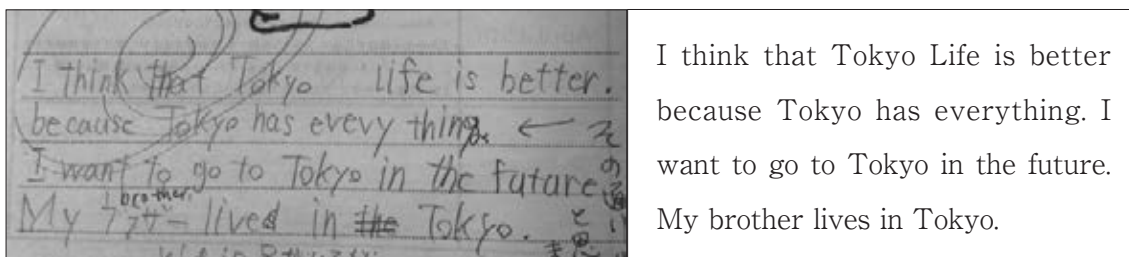 I think that Tokyo life is better.
because Tokyo has evevy thing. ← その通りと思い
I want to go to Tokyo in the future.
brother.
My ブラザー lived in the Tokyo.
I think that Tokyo Life is better
because Tokyo has everything. I
want to go to Tokyo in the future.
My brother lives in Tokyo.